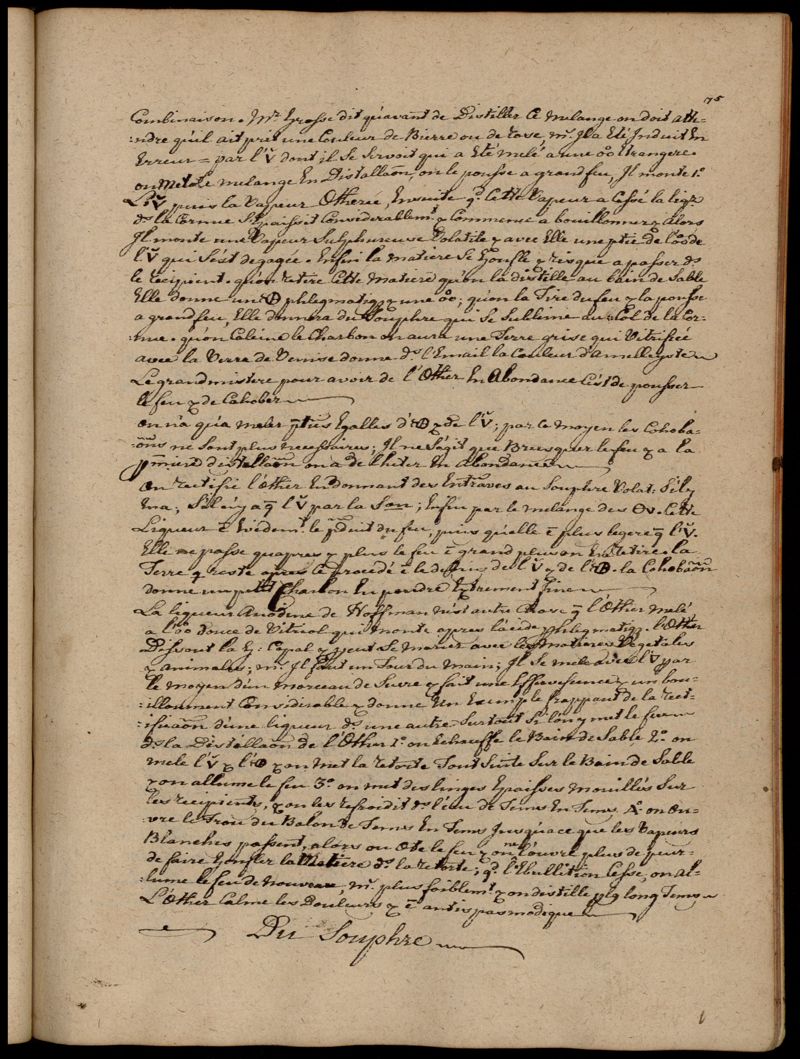 75
Combinaison. Mr. Grosse dit qu'avant de Distiller Ce melange on doit atte-
:ndre qu'il ait pris une Couleur de Bierre ou de rose, ms. Il a Eté Induit En
Erreur par l'V̆ dont il Se Servoit qui a Eté melé a une oo Etrangere.
on Met le melange En Distallaõn, on le pousse a grand feu, Il monte 1o.
L'V̆, puis la Vapeur Otherée, Ensuite qd. Cette Vapeur a Cessé la liqr
ds. la Cornue S'Epaissit Considerablemt. & Commence a bouillonner & alors
Il monte une Vapeur Sulphureuse Volatile & avec Elle une ptie de l'oo de
l'V̆ qui S'est degagée. Enfin la matiere Se Gonfle & risque a passer ds.
le recipient. qu'on retire Cette Matiere qu'on la distille au bain de Sable
Elle donne un phlegmatiq & une oo; qu'on la Tire du feu & la pousse
a grand feu, Elle donnera du Souphre qui Se Sublime au Col de la Cor-
nue. qu'on Calcine le Charbon on aura une Terre grise qui Vitrifiée
avec la Verre de Venise donne ds. l'Email la Couleur d'amethyste
Le grand mistere pour avoir de l'Ether En Abondance C'est de pousser
le feu & de Cahober
on n'a qu'a meler pties Egalles d' & de l'V̆; par ce moyen les Cohoba-
:õns ne Sont plus necessaires; Il ne S'agit que Brusquer le feu & a la
pmiere distallaõn on a de l'hiter En abondance
On rectifie l'Ether En donnant des Entraves au Souphre Volat: S'il y
En a; S'il n'y a q l'V̆ par la Son; Enfin par le melange des Cette
Liqueur ē Evidemt. le pduit du feu, puis qu'elle ē plus legere q l'V̆.
Elle ne passe qu'apres & plus le feu ē grand plus on En retire. la
Terre q reste apres ce procedé ē la de l'V̆ & de l' la Cohobaõn
donne un petit Charbon En poudre Extrement fine
La liqueur Anodine de Hoffman n'est autre Chose q l'Ether melé
a l'oo douce de Vitriol qui monte apres l'acide phlegmatiq. l'Ether
Dissout la G: Copal & peut Se Marier avec les matieres Vegetales
& animales; ms. Il faut un Tour du main; Il Se mele avec l'V̆ par
le moyen d'un morceau de Sucre & fait une Effervescence & un bou-
:illonment Considerable & donne Un Exemple frappant de la rect-
:ification d'une liqueur ds. une autre Surtout Si l'on y met le feu
ds. la Distillaõn de l'Ether 1o. on Echauffe le Bain de Sable 2o. on
mele l'V̆ & l' & on met la retorte Tout Suite Sur le Bain de Sable
& on allume le feu 3o. on met des linges Epaisses Mouillés Sur
les recipients, & on les refroidit ds. l'eau de Tems En Tems 4o. on ou-
vre le Trou du Balon de Tems En Tems Jusqu'ace que les Vapeurs
Blanches passent, alors on ote le feu & on ne l'ouvre plus de peur
de faire Gonfler la Matiere ds. la retorte; qd. l'Ebullition Cesse, on al-
:lume le feu de Nouveau, ms. plus foiblemt. & on distille plq long Tems
L'Ether Calme les Douleurs & ē antispasmodique
Du Souphre